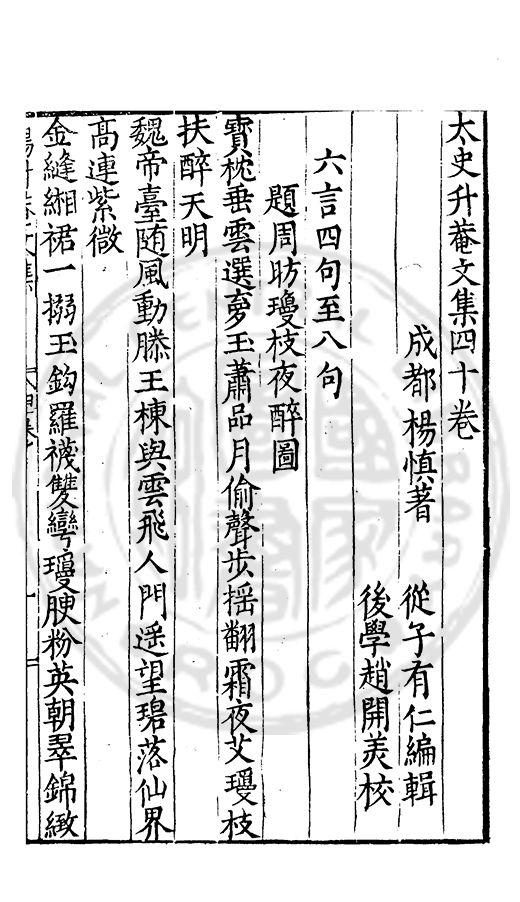 太史升菴文集四十卷
成都楊慎著 從子有仁編輯
後學趙開美校
六言四句至八句
題周昉瓊枝夜醉圖
寶枕垂雲選夢玉蕭品月偷聲步搖翻霜夜艾瓊枝
扶醉天明
魏帝臺随風動滕王棟與雲飛人門遥望碧落仙界
高連紫微
金縫緗裙一搦玉鈎羅襪雙彎瓊腴粉英朝翠錦緻